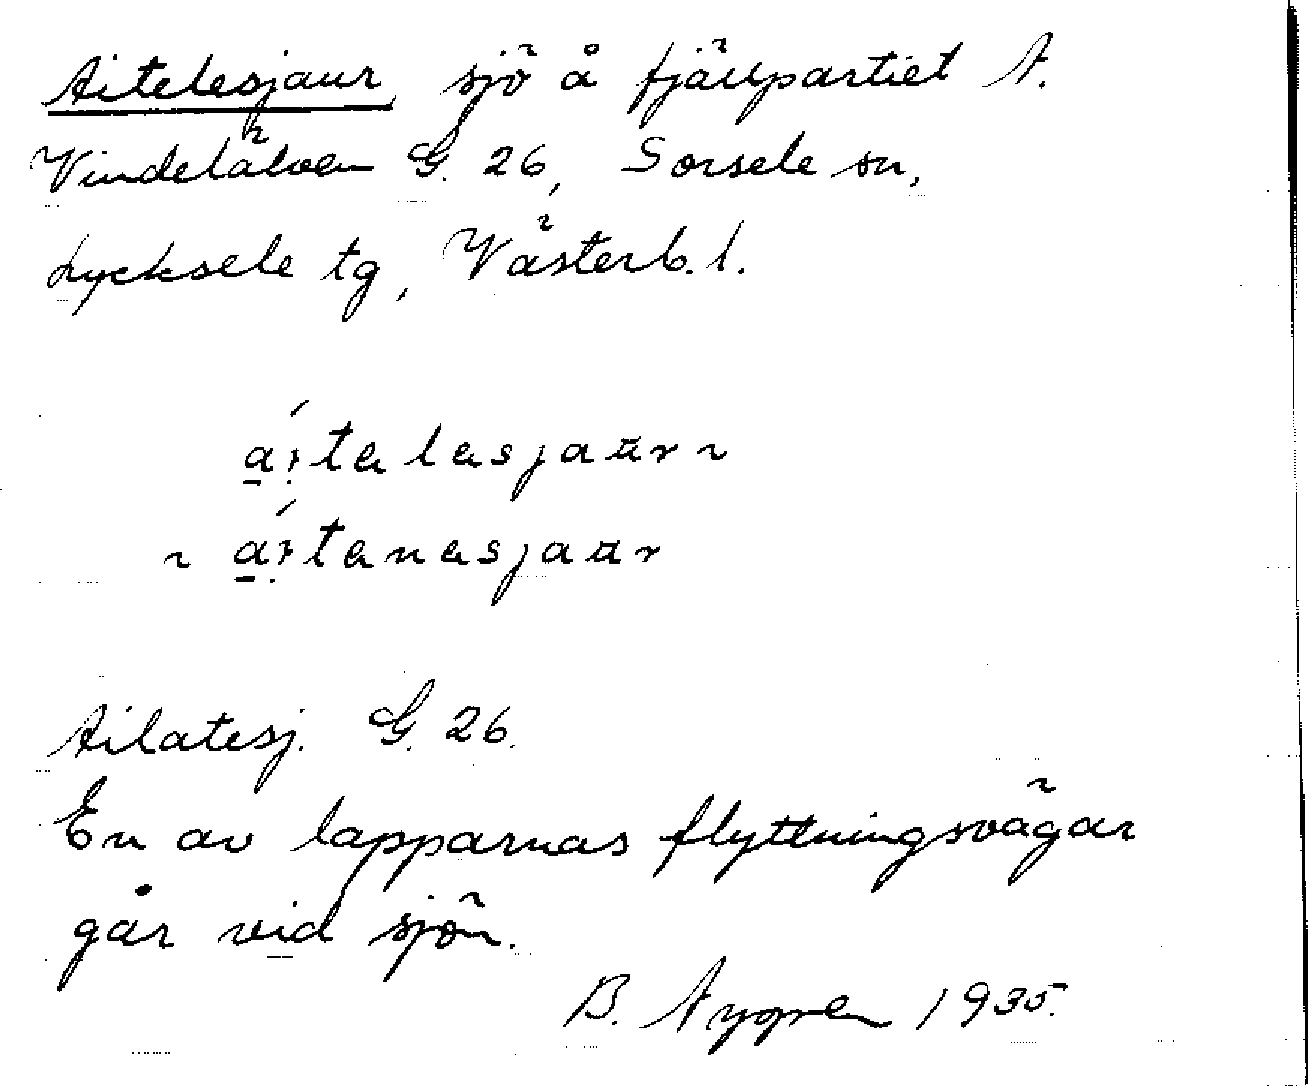 Aitelesjaur, sjö å fjällpartiet N.
Vindelälven G. 26, Sorsele sn,
Lycksele tg, Västerb. l.
a̱í̯talasjaur ~
~ a̱í̯tanasjaur
Ailatesj. G. 26.
En av lapparnas flyttningsvägar
går vid sjön.
B. Nygren 1935.